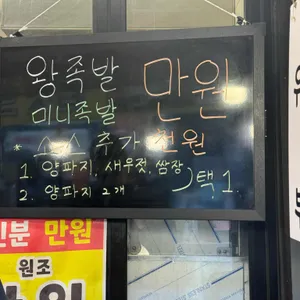 왕족발 만원
미니족발
* 소스 추가 천원
1. 양파지, 새우젓, 쌈장
2. 양파지 2개 ) 택. 1.
인분 만원
원조